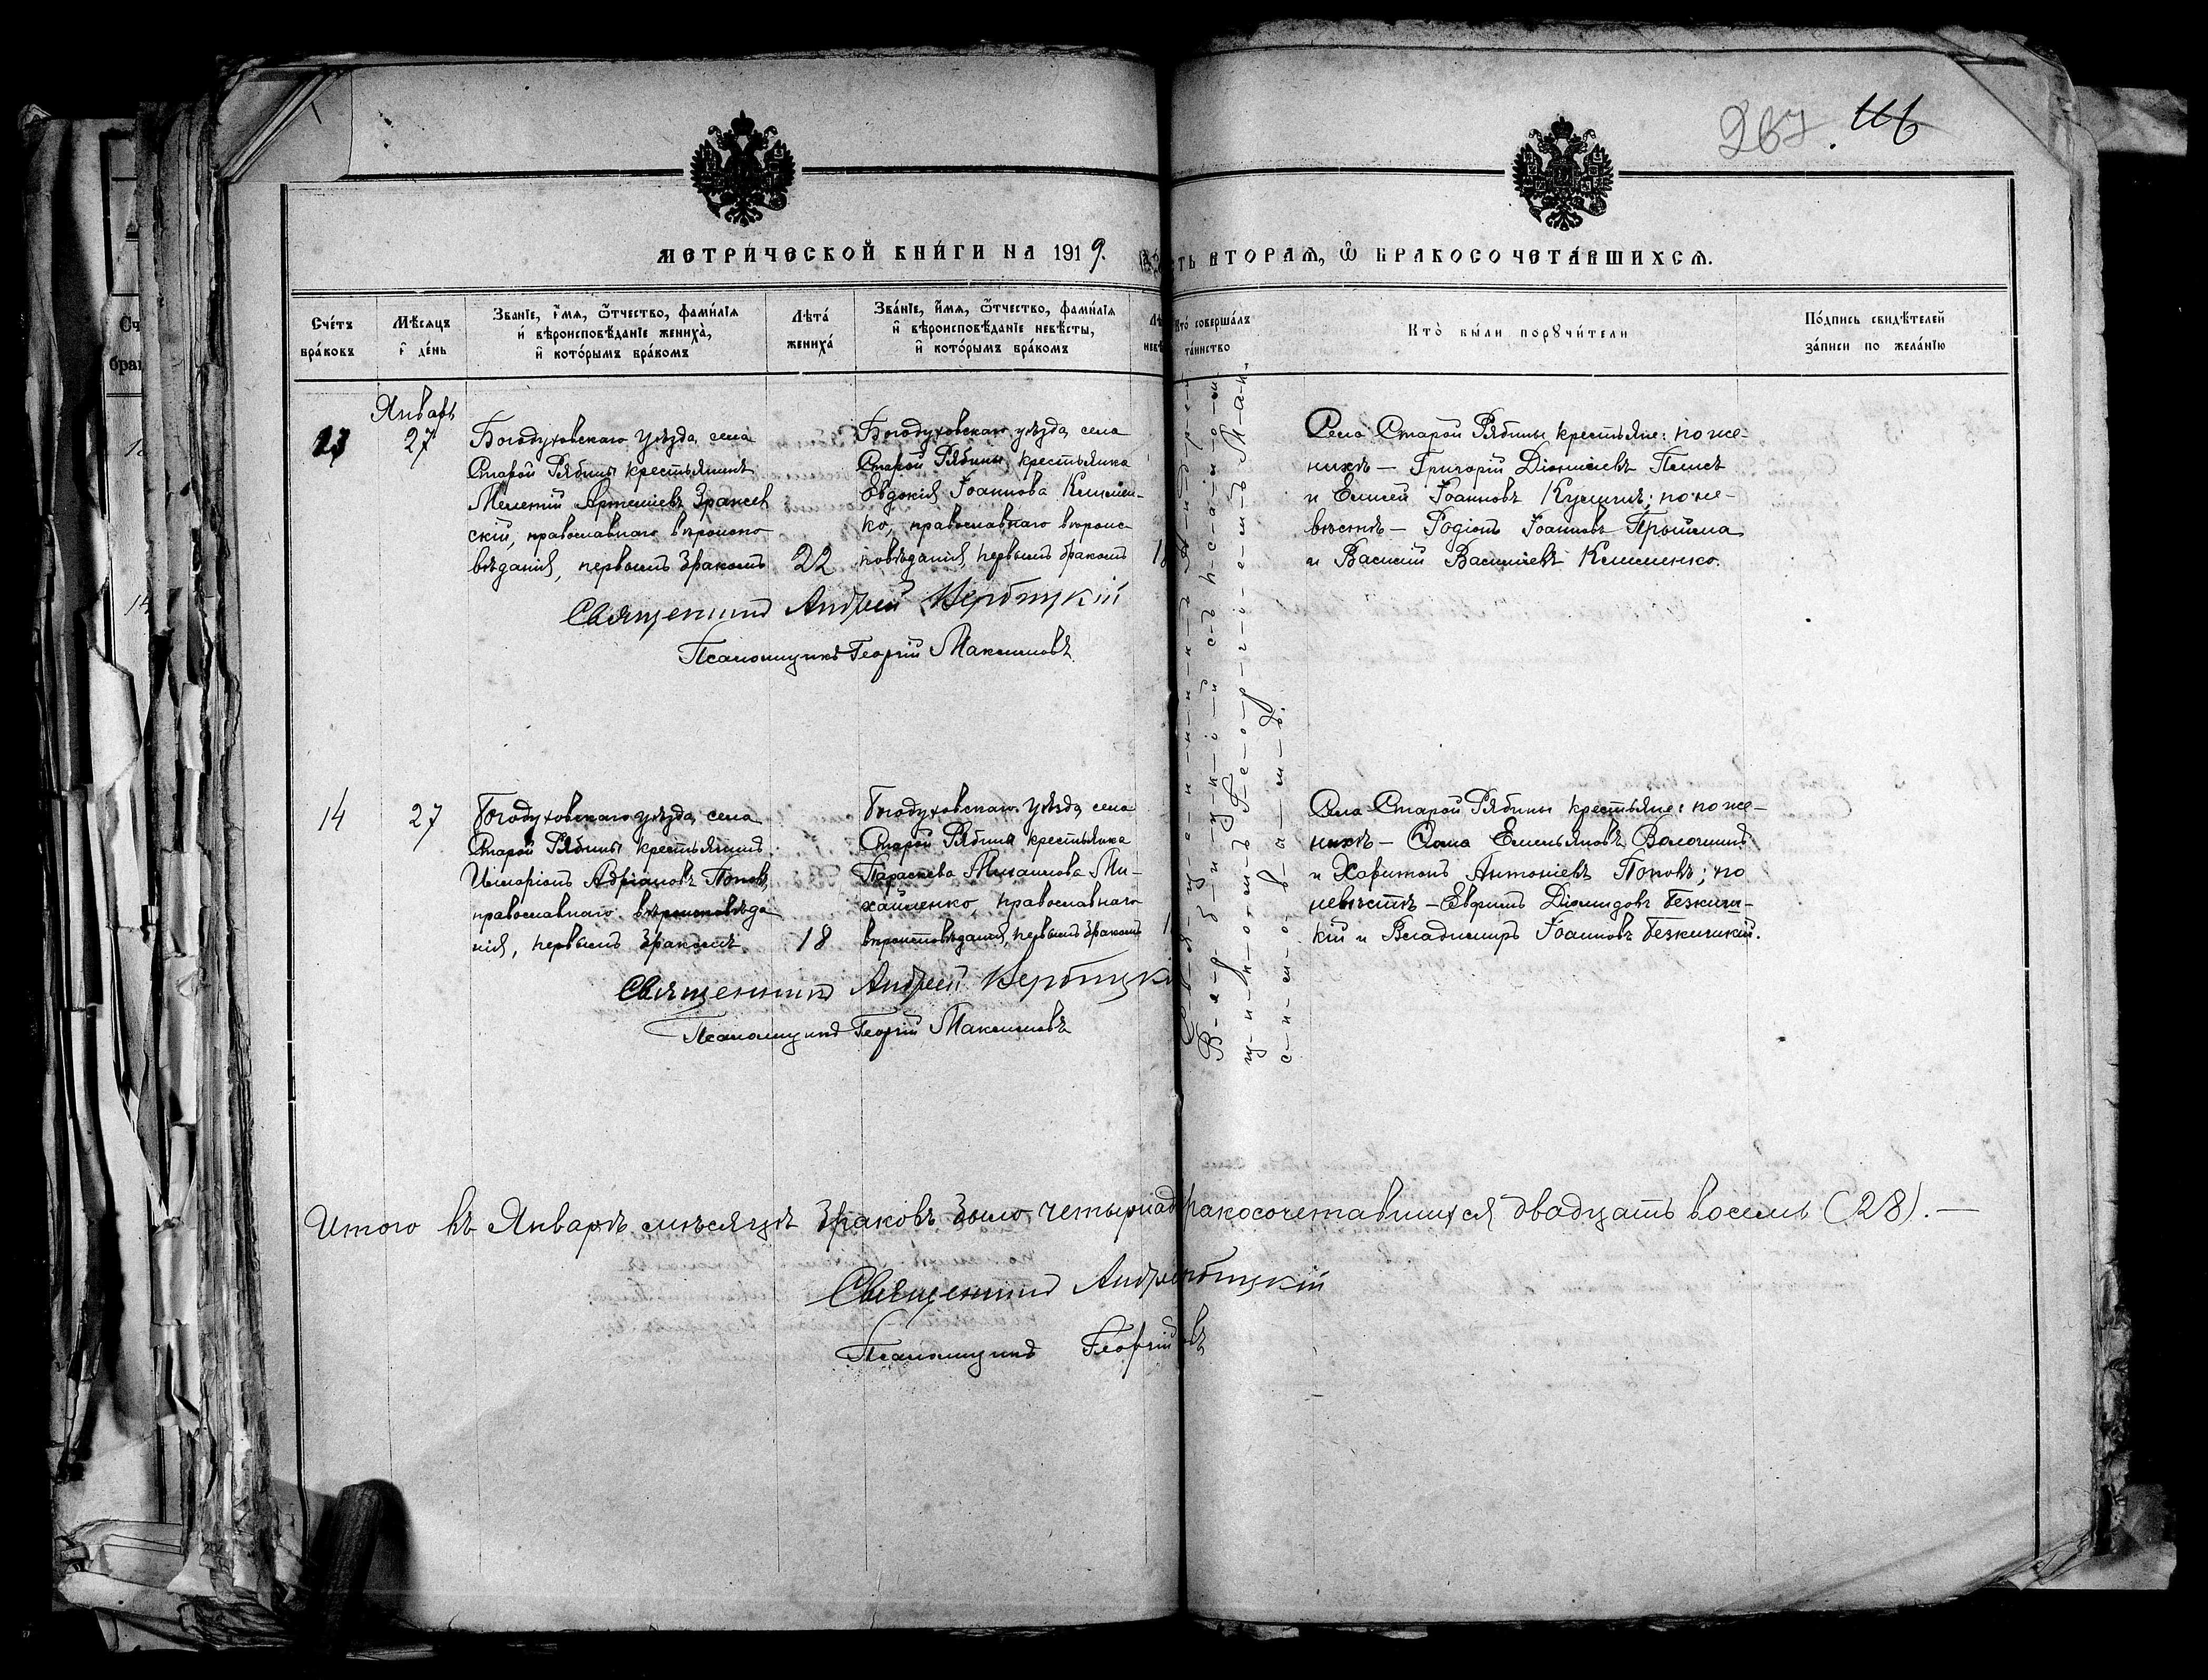 267. 116
МЕТРИЧЕСКОЙ КНИГИ НА 1919. ЧАСТЬ ВТОРАЯ, Ѡ БРАКОСОЧЕТАВШИХСЯ.
Счетъ браковъ
Мѣсяцъ и день
Званіе, имя, ѿтчество, фамилія
и вѣроисповѣданіе жениха,
и которымъ бракомъ
Лѣта жениха
Званіе, имя, ѿтчество, фамилія
и вѣроисповѣданіе невѣсты,
и которымъ бракомъ
Кто совершалъ таинство
Кто были поручители
Подпись свидѣтелей
записи по желанію
Январь
13
27
Богодуховскаго уѣзда, села
Старой Рябины крестьянинъ
Мелетій Артеміевъ
скій, православнаго вѣроиспо-
вѣданія, первымъ бракомъ
22
Богодуховскаго уѣзда, села
Старой Рябины, крестьянка
Евдокія Іоаннова Климен-
ко, православнаго вѣроис-
повѣданія, первымъ бракомъ
Села Старой Рябины крестьяне: по же-
нихѣ — Григорій Діонисіевъ
и Елисей Іоанновъ ; по не-
вѣстѣ — Родіонъ Іоанновъ
и Василій Василіевъ Клименко.
Священникъ Андрей Вербицкій
Псаломщикъ Георгій Максимовъ
14
27
Богодуховскаго уѣзда, села
Старой Рябины крестьянинъ
Иларіонъ Адріановъ Поповъ,
православнаго вѣроисповѣда
нія, первымъ бракомъ
18
Богодуховскаго уѣзда, села
Старой Рябины крестьянка
Параскева Михаилова Ми-
хайленко, православнаго
вѣроисповѣданія, первымъ бракомъ
Села Старой Рябины крестьяне: по же-
нихѣ — Ѳома Емельяновъ Волошинъ
и Харитонъ Антоніевъ Поповъ; по
невѣстѣ — Евфимъ Діомидовъ
кій и Владимиръ Іоанновъ
Священникъ Андрей Вербицкі
Псаломщикъ Георгій Максимовъ
С-в-я-щ-е-н-н-и-к-ъ А-н-д-р-е-й
В-е-р-б-и-ц-к-і-й с-ъ п-с-а-л-о-м-
щ-и-к-о-м-ъ Г-е-о-р-г-і-е-м-ъ М-а-к-
с-и-м-о-в-ы-м-ъ.
Итого въ Январѣ мѣсяцѣ браковъ было четырнад ракосочетавшихся двадцать восемь (28). —
Священникъ Андре бицкій
Псаломщикъ Георгій овъ